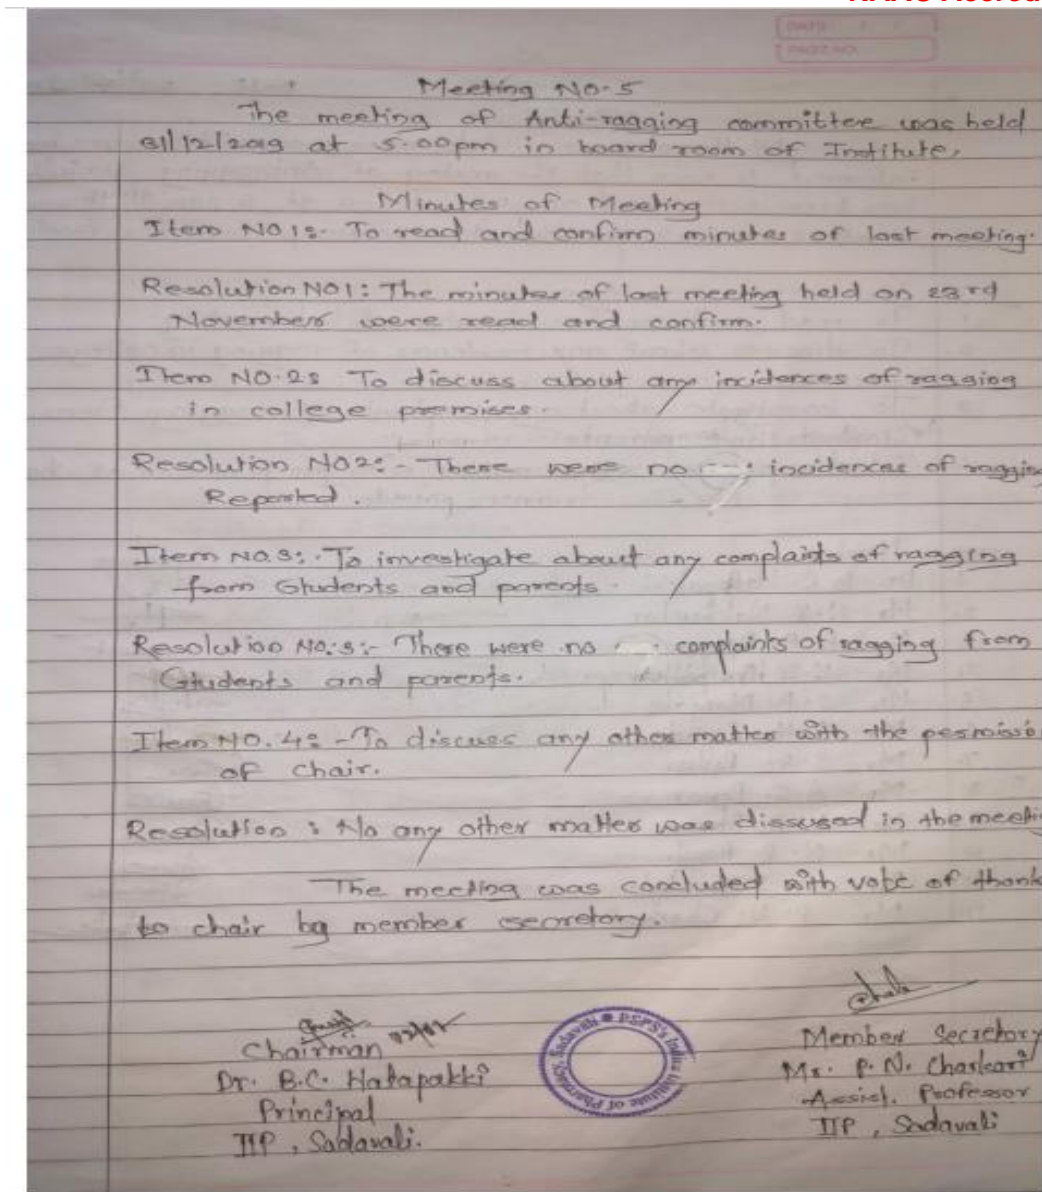 DATE
PAGE NO
Meeting No. 5
The meeting of Anti-ragging committee was held
31/12/2019 at 5.00pm in board room of Institute.
Minutes of Meeting
Item No 1:- To read and confirm minutes of last meeting.
Resolution No1: The minutes of last meeting held on 23rd
November were read and confirm.
Item No. 2: To discuss about any incidences of ragging
in college premises.
Resolution No2:- There were no incidences of ragging
Reported.
Item No.3:- To investigate about any complaints of ragging
from Students and parents.
Resolution No.3:- There were no complaints of ragging from
Students and parents.
Item No. 4:- To discuss any other matter with the permissio
of chair.
Resolution : No any other matter was disscused in the meeti
The meeting was concluded with vote of thank
to chair by member secretory.
Chairman
Dr. B.C. Hatapakki
Principal
IIP, Sadavali.
PSPS's Indira Institute of Pharmacy, Sadavali
Member Secretory
Mr. P. N. Charkari
Assist. Professor
IIP, Sadavali